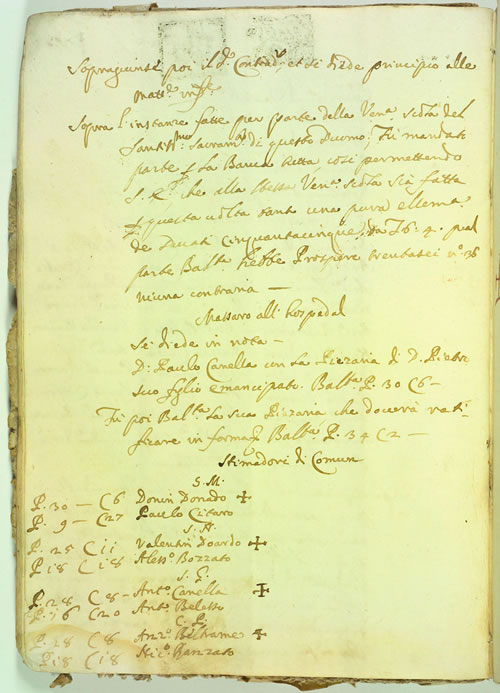 Sopragiunse poi il Sr. Contad.r, et si diede principio alle
matt.e inf.te
Sopra l'instanze fatte per parte della Ven.a scola del
Santiss.mo Sacram.to di questo Duomo, Fu mandato
parte la Banca tutta così permettendo
S. E. che alla stessa Ven.a scola sia fatta
p questa volta tant' una pura ellemo
de Ducati Cinquantacinque, da L 6: 4. qual
parte Bal.ta hebbe Prospere trentasei n.o 36
niuna contraria —
Massaro all' hospedal
Si diede in nota —
D: Paulo Canella con la Piezaria di D. Pietro
suo figlio emancipato. Bal.ta P. 30 C6 —
Fu poi Bal.ta La sua Piezaria che doverà rati-
ficare in forma Bal.ta P. 34 C2 —
Stimadori di Comun
S. M.
P. 30 — C6 Donin Donado +
P. 9 — C27 Paulo
S. A.
P. 25 C11 Valentin Doardo +
P. 18 C18 Aless.o Bozzato
S. G.
P. 28 C8 — Ant.o Canella +
P. 16 C20 Ant.o Beletto
C. P.
P. 28 C8 Beltrame +
P. 18 C18 Nic.o Ranzato